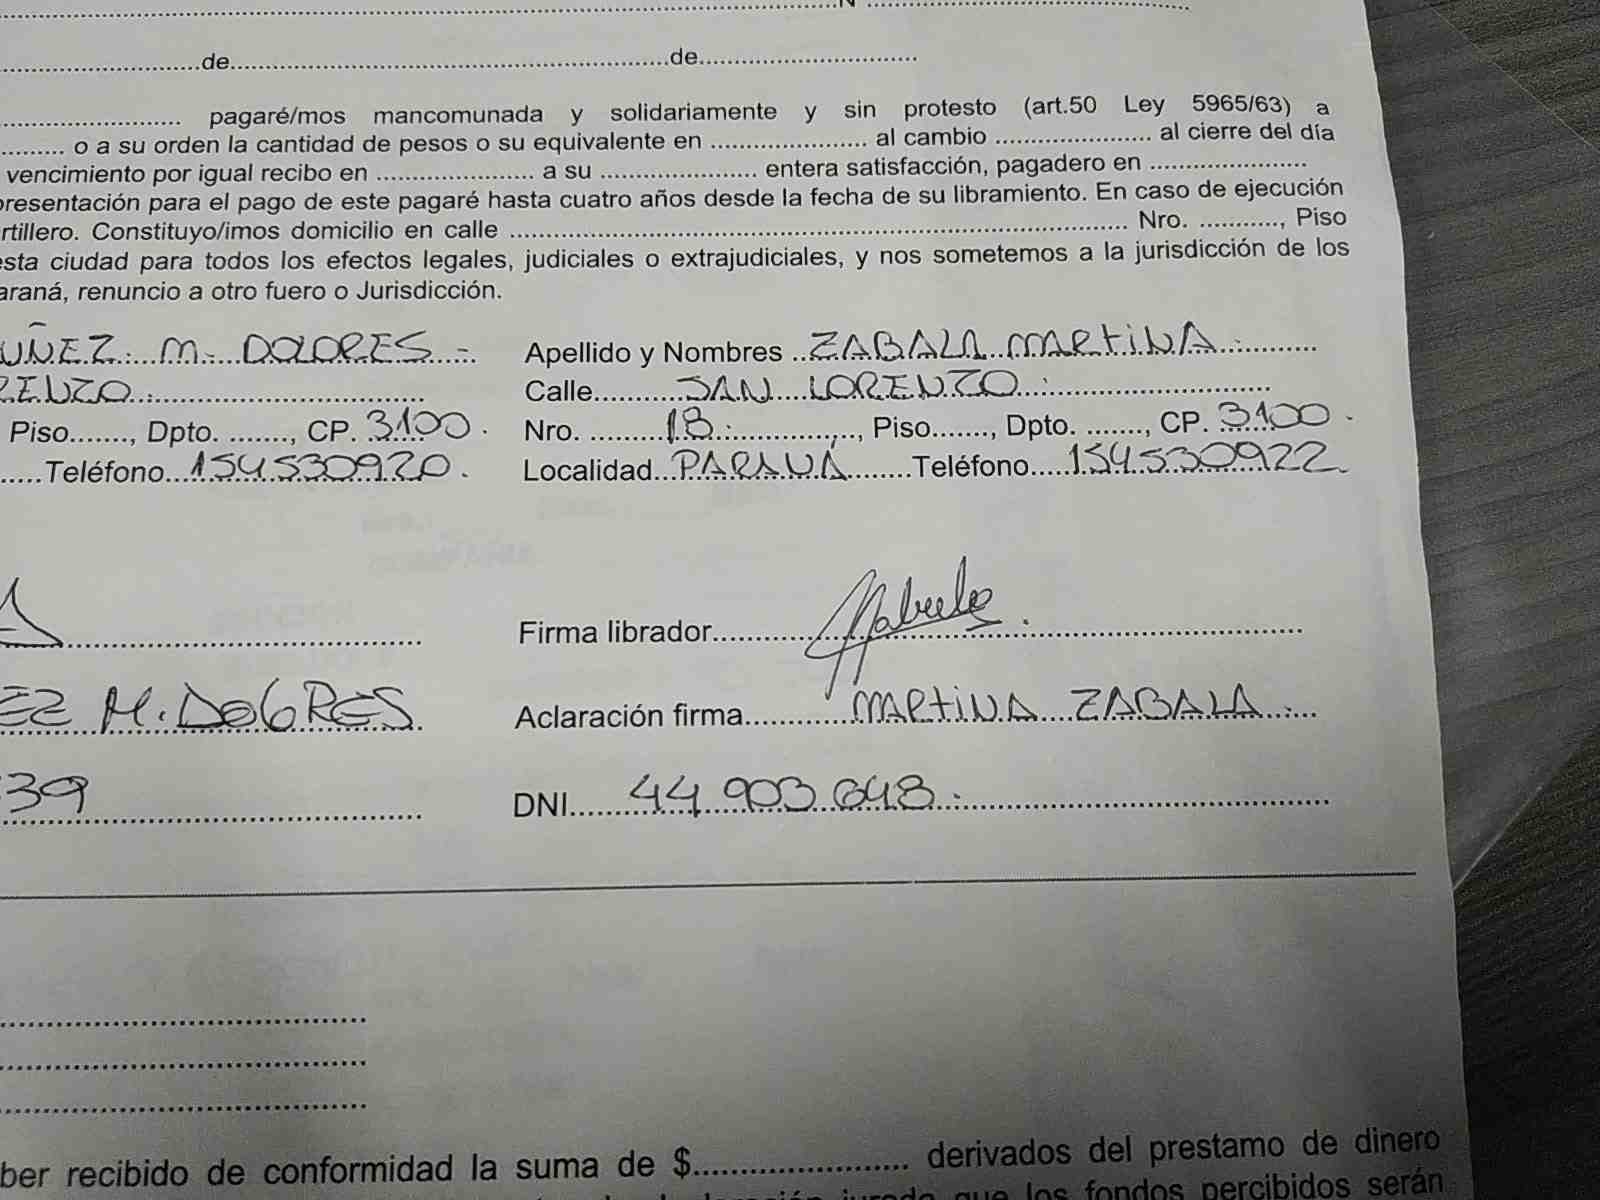 N
de de
pagaré/mos mancomunada y solidariamente y sin protesto (art.50 Ley 5965/63) a
o a su orden la cantidad de pesos o su equivalente en al cambio al cierre del día
vencimiento por igual recibo en a su entera satisfacción, pagadero en
presentación para el pago de este pagaré hasta cuatro años desde la fecha de su libramiento. En caso de ejecución
rtillero. Constituyo/imos domicilio en calle Nro. , Piso
esta ciudad para todos los efectos legales, judiciales o extrajudiciales, y nos sometemos a la jurisdicción de los
araná, renuncio a otro fuero o Jurisdicción.
UÑEZ M. DOLORES Apellido y Nombres ZABALA MARTINA
RENZO Calle SAN LORENZO
Piso, Dpto. , CP. 3100 Nro. 18 , Piso, Dpto. , CP. 3100
Teléfono 154530920 Localidad PARANÁ Teléfono 154530922
Firma librador
EZ M. DOLORES Aclaración firma MARTINA ZABALA
39 DNI 44.903.648
ber recibido de conformidad la suma de $ derivados del prestamo de dinero
que los fondos percibidos serán